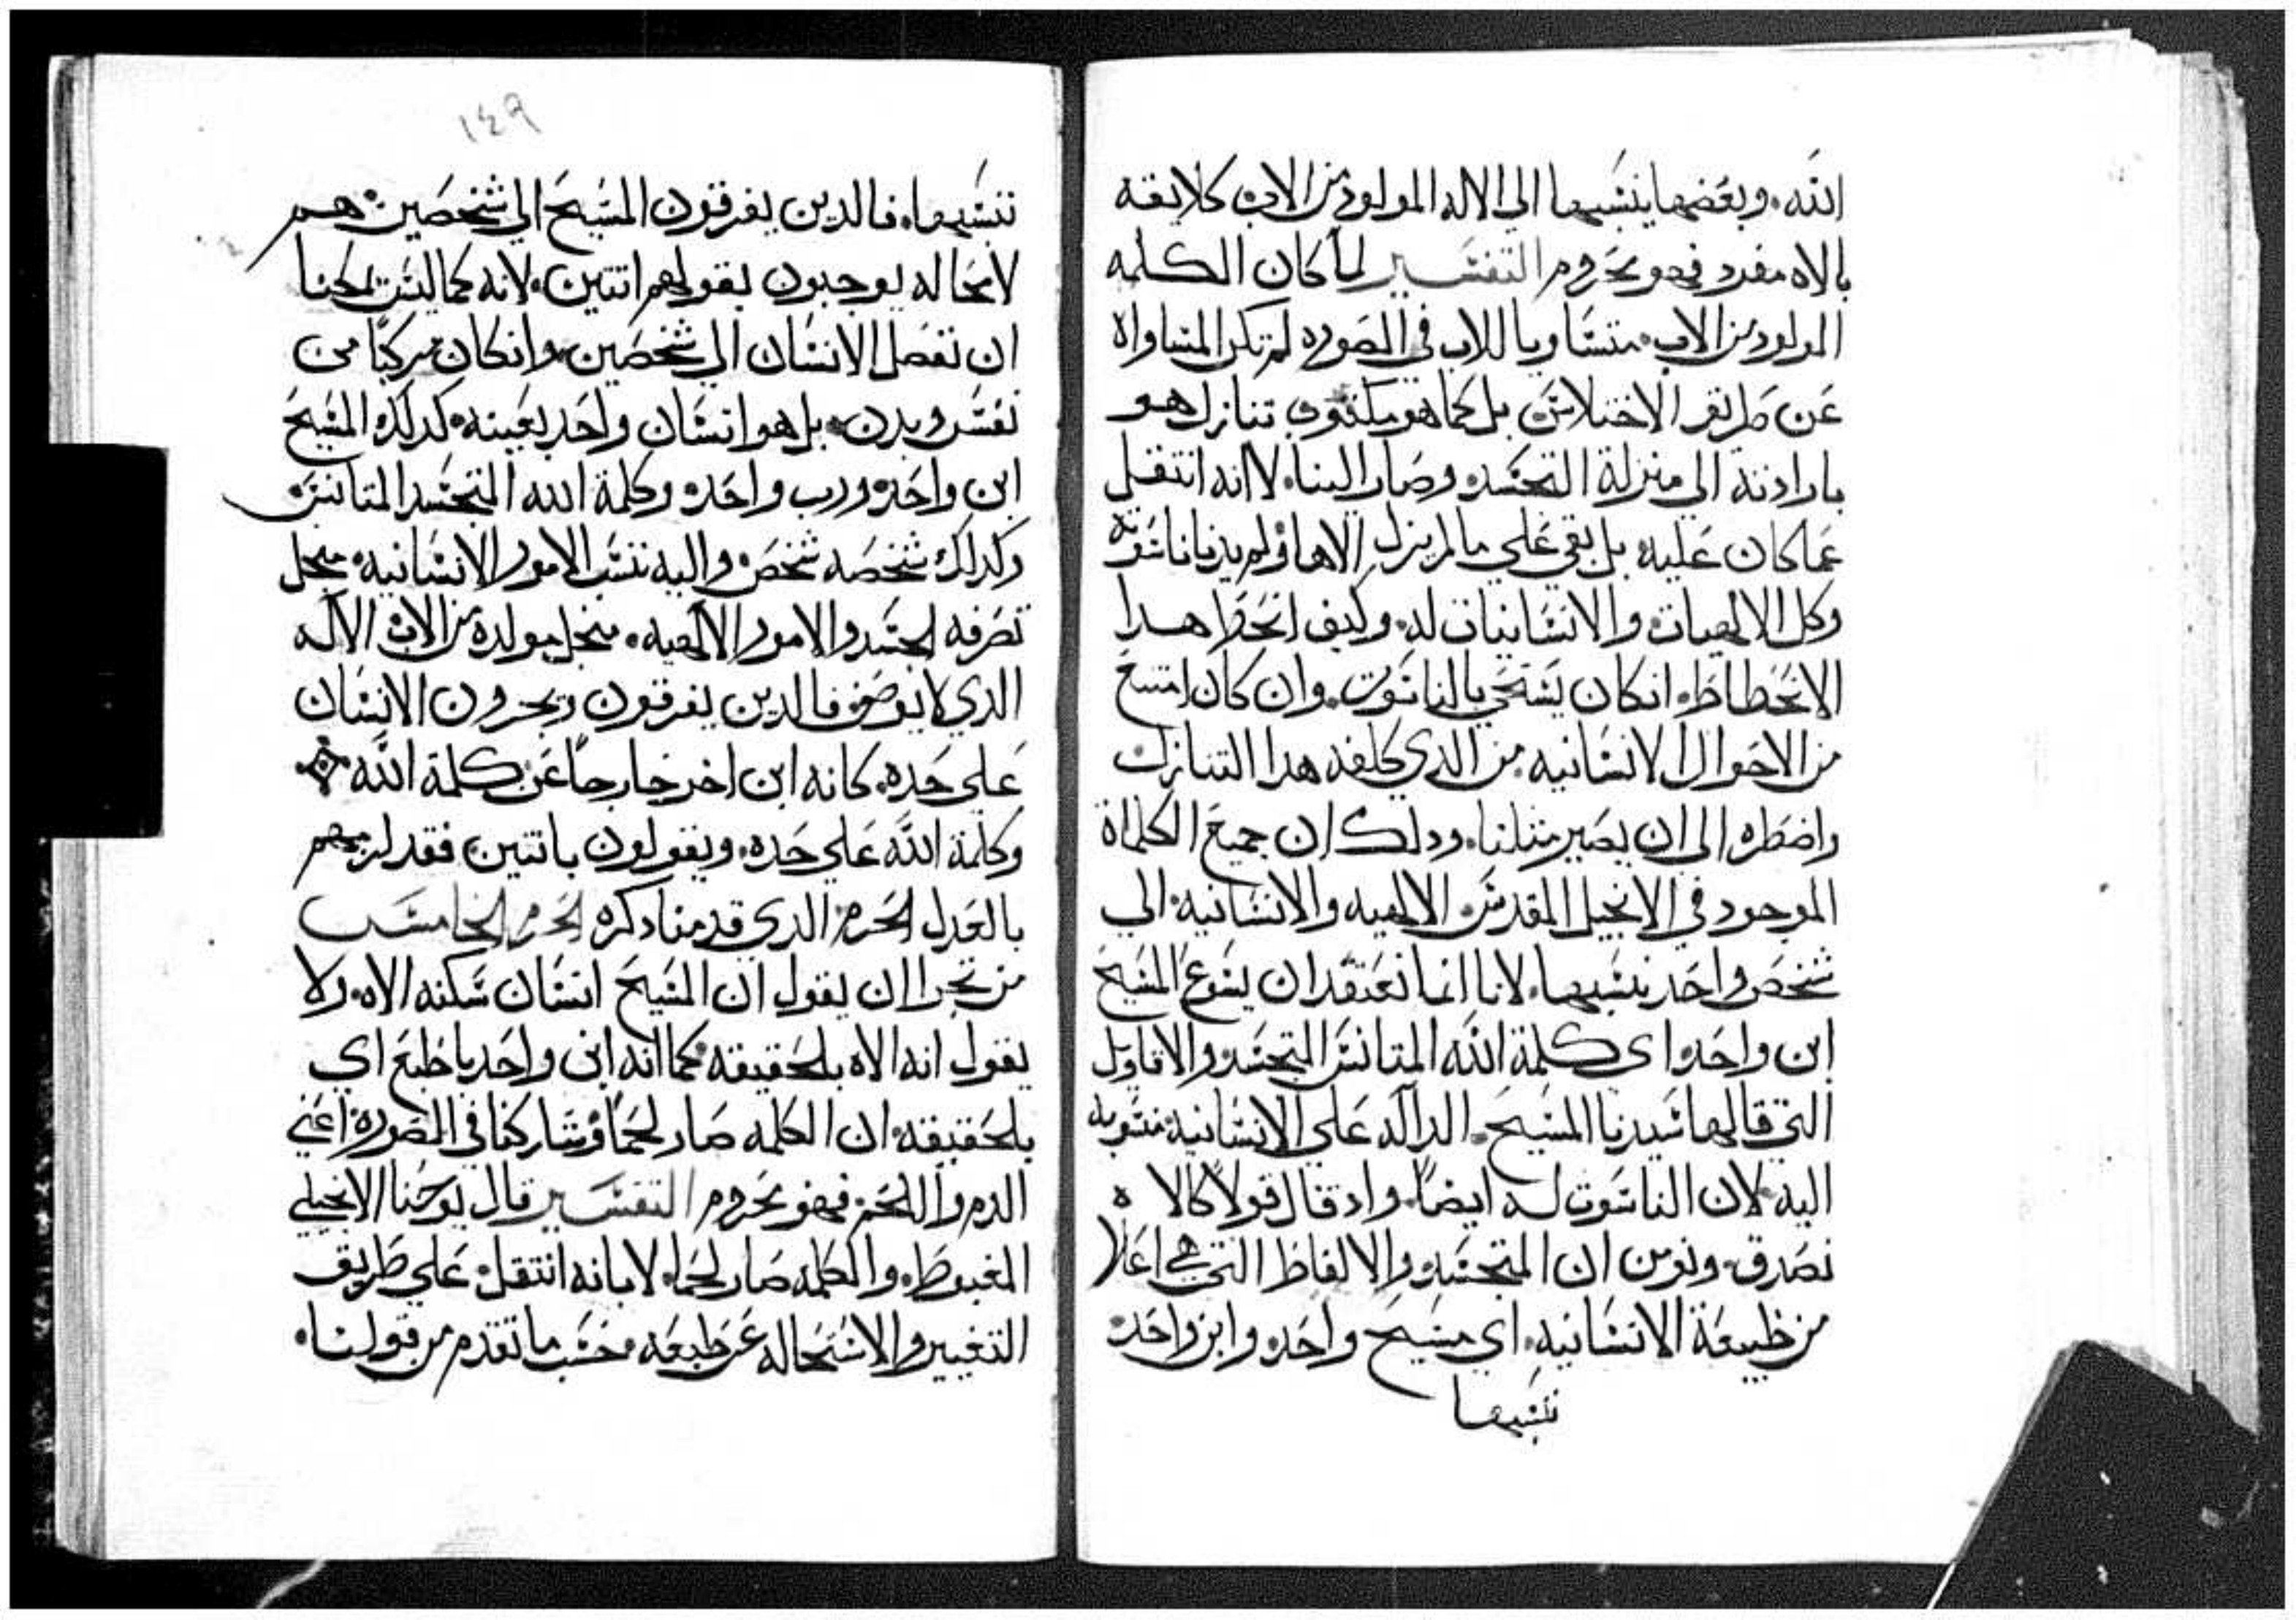 الله. وبعضها ينسبها الى الاله المولود من الاب كلايقه
بالاه مفرد فهو محروم التفسير لما كان الكلمه
المولود من الاب متساويا للاب في الصوره لم تكن المساواه
عن طريق الاختلاس بل كما هو مكتوب تنازل هو
بارادته الي منزلة التجسد وصار الينا. لا انه انتقل
عما كان عليه بل بقي علي ما لم يزل الاها ولم يدنا ناسوته
وكل الالهيات والانسانيات له. وكيف انحط هدا
الانحطاط. انكان يستحي بالناسوت. وان كان امتنع
من الاحوال الانسانيه من الدي كلفه هدا التنازل
واضطره الى ان يصير مثلنا. ودلك ان جميع الكلماة
الموجود في الانجيل المقدس الالهيه والانسانيه الي
شخص واحد ننسبها. لانا انما نعتقد ان يسوع المسيح
ابن واحد اى كلمة الله المتانس المتجسد والاقاويل
التي قالها سيدنا المسيح. الدآله على الانسانيه منسوبه
اليه لان الناسوت له ايضاً. واد قال قولاً كالاه
نصدق ونومن ان المتجسد والالفاظ التي هي اعلا
من طبيعة الانسانيه. اي مسيح واحد وابن واحد
ننسبها
١٤٩
ننسبها. فالدين يفرقون المسيح الي شخصين هم
لا محاله يوجبون بقولهم اتنين. لانه كما ليس يمكننا
ان نفصل الانسان الي شخصين وانكان مركبًا من
نفس وبدن. بل هو انسان واحد بعينه كدلك المسيح
ابن واحد ورب واحد وكلمة الله المتجسد المتانس
وكدلك شخصه شخص واليه ننسب الامور الانسانيه منجل
تصرفه لجسد والامور الآلهيه. منجل مولده من الاب الآله
الدي لا يوصف فالدين يفرقون ويحرون الانسان
على حده. كانه ابن اخر خارجاً عن كلمة الله
وكلمة الله على حده. ويقولون باتنين فقد لزمهم
بالعدل الحرم الدي قدمنا دكره الحرم الخامس
من تجرا ان يقول ان المسيح انسان سكنه الاه. ولا
يقول انه الاه بلحقيقه كما انه ابن واحد باطبع اي
بلحقيقه ان الكلمه صار لحماً وشاركنا في الصوره اعني
الدم واللحم فهو محروم التفسير قال يوحنا الانجيلي
المغبوط. والكلمه صار لحما. لا بانه انتقل علي طريق
التغيير والاستحاله عن طبعه محسب ما تقدم من قولنا.